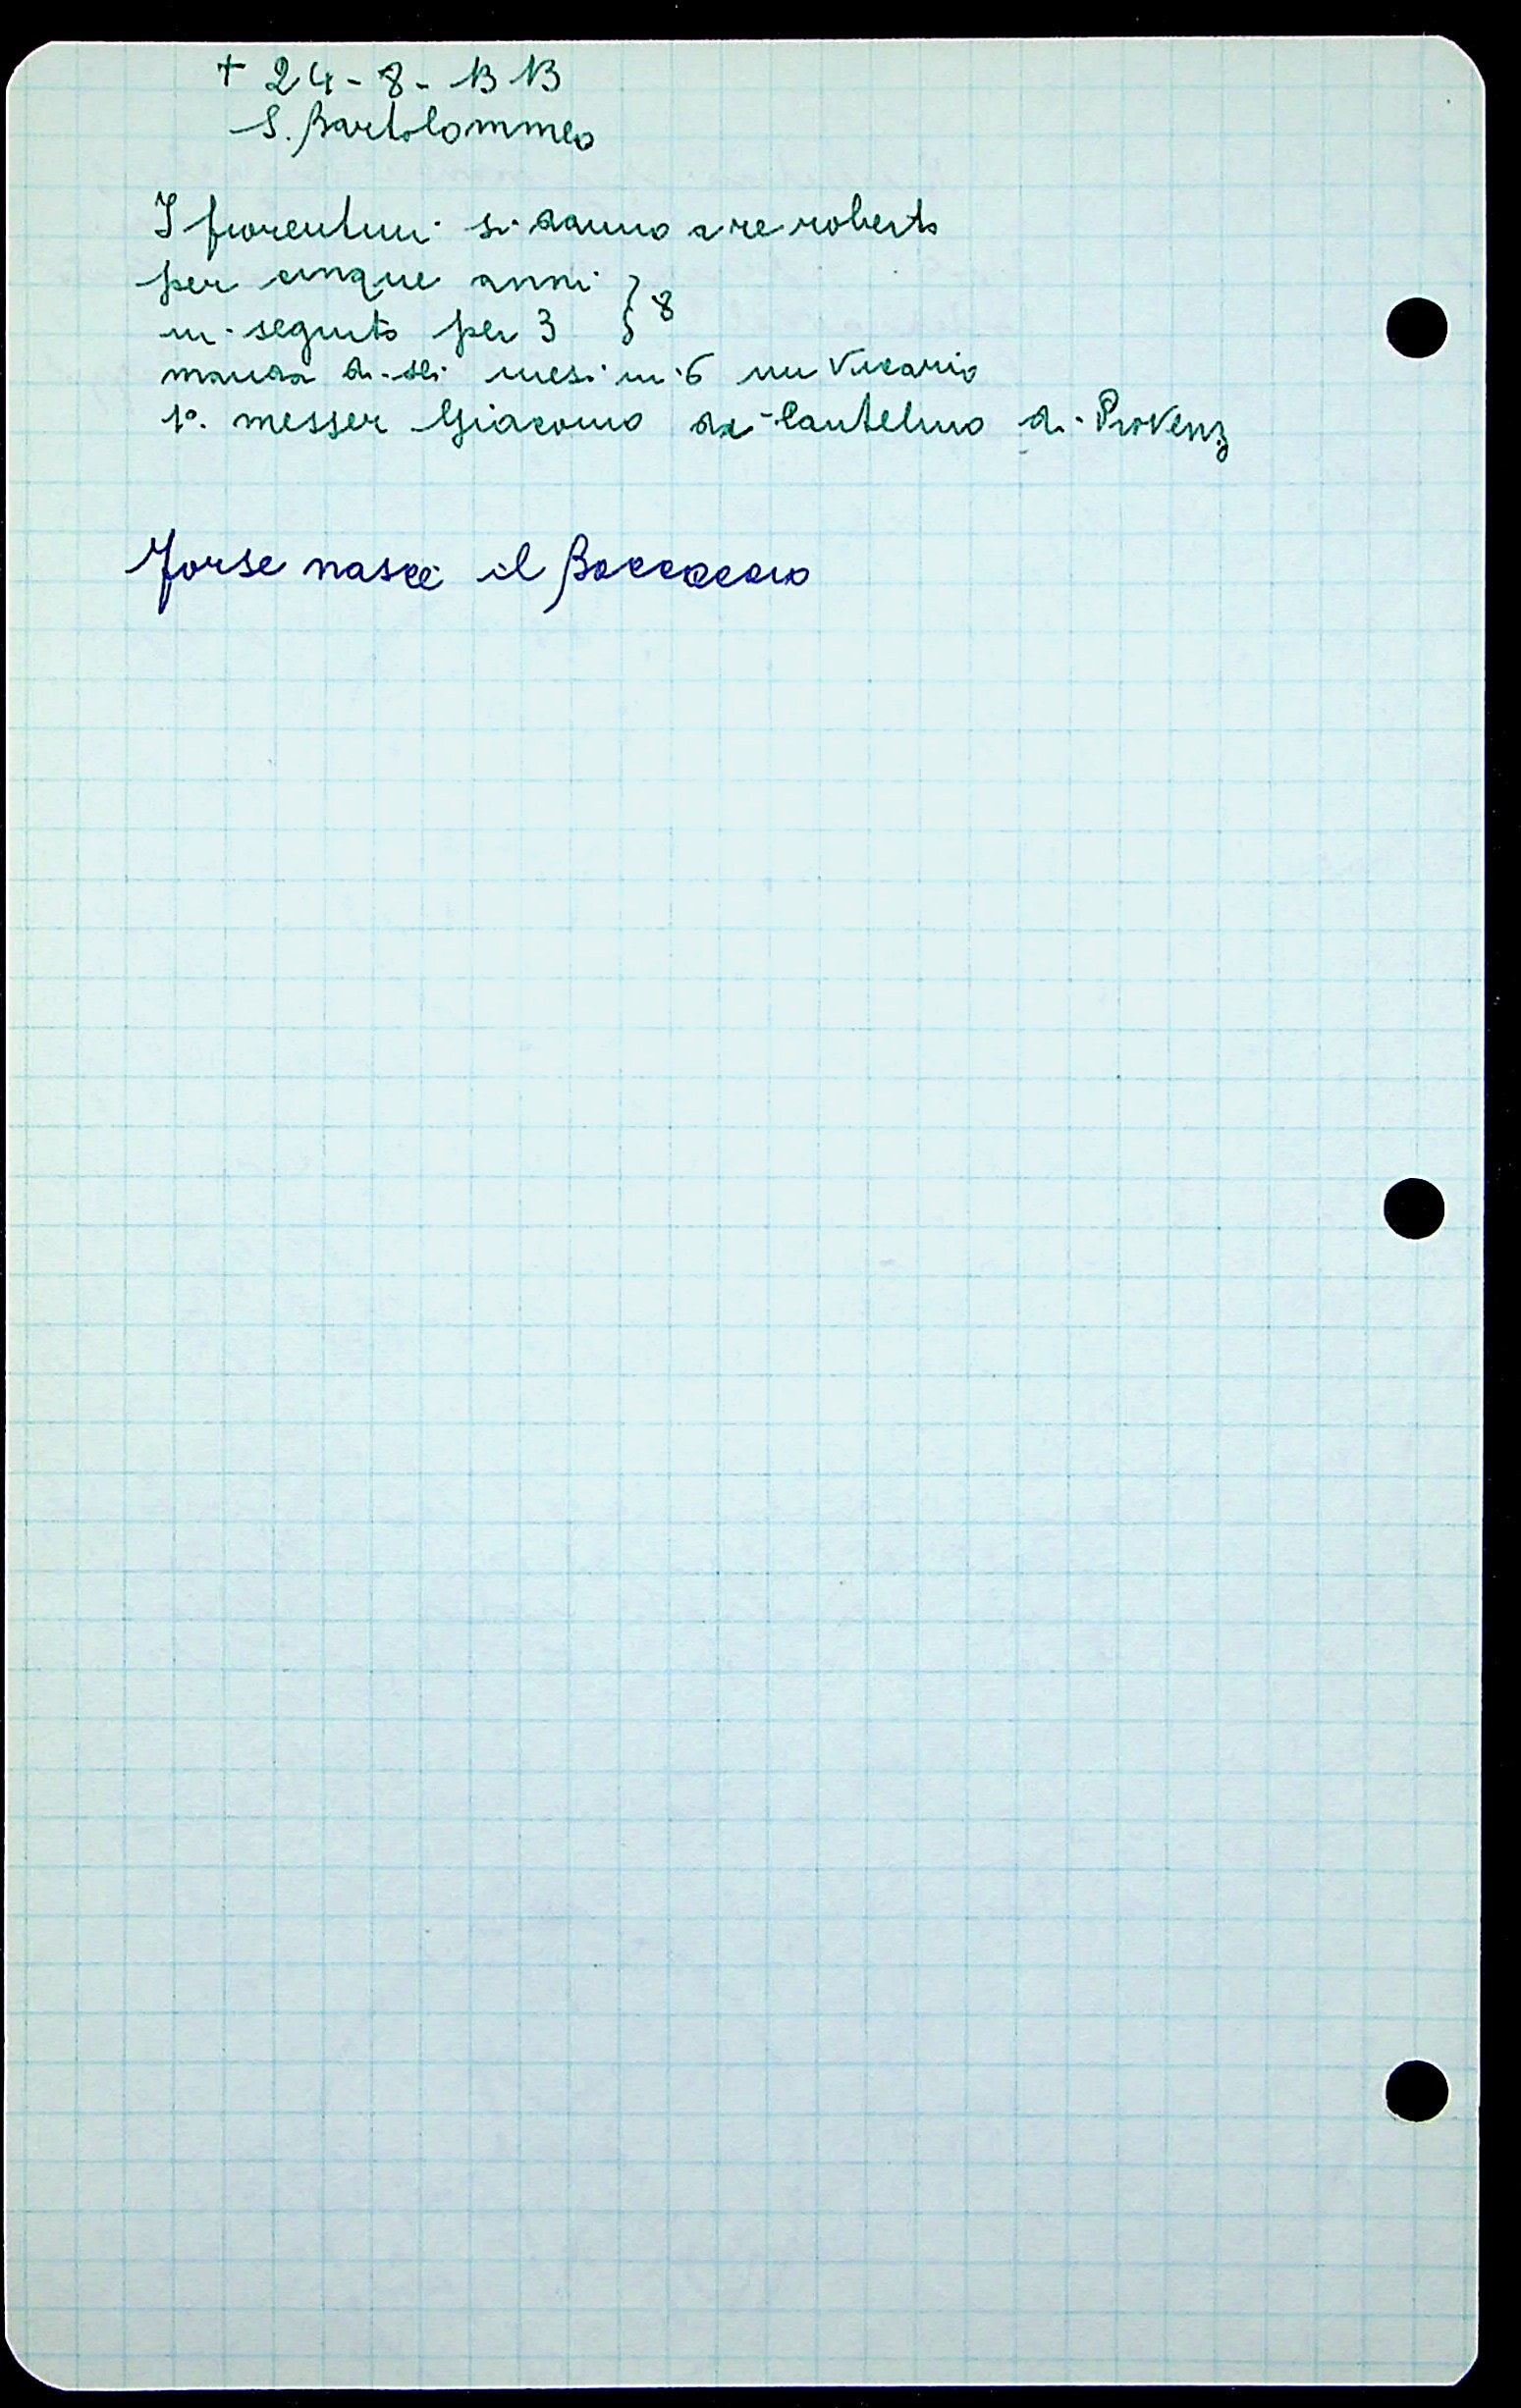 + 24 - 8 - 1313
S. Bartolommeo
I fiorentini si danno a re roberto
per cinque anni } 8
in seguito per 3
manda di sei mesi in 6 un Vicario
1°. messer Giacomo di Cantelmo di Provenz
Forse nasce il Boccaccio